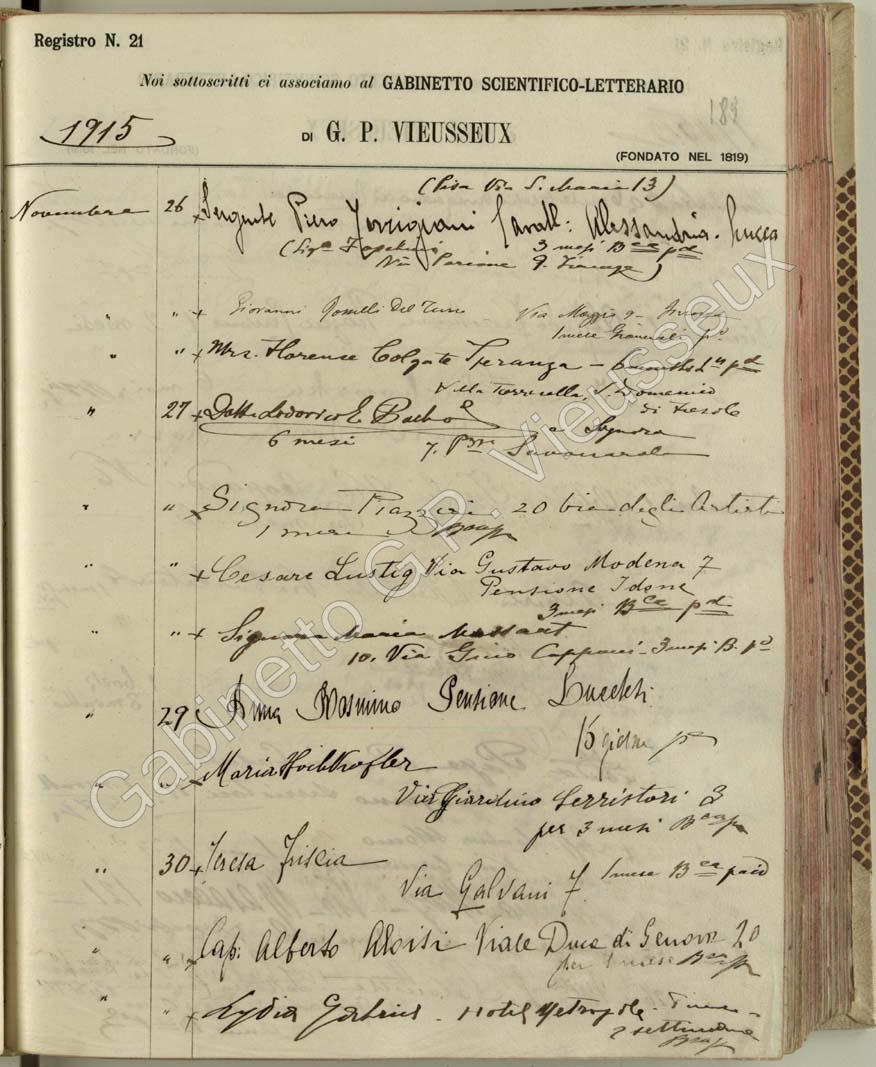 Registro N. 21
Noi sottoscritti ci associamo al GABINETTO SCIENTIFICO-LETTERARIO
189
1915
DI G. P. VIEUSSEUX
(FONDATO NEL 1819)
(Pisa Via S. Maria 13)
Novembre 26 Sergente Piero Torrigiani Cavall: Alessandria - Lucca
3 mesi Bca pd
Via Parione 9. Firenze)
" " Giovanni Rosselli Del Turco Via Maggio 9 - Firenze
1 mese Giornali pd
" " Mrs. Florence Colgate Speranza - 6 months Ly pd
Villa Torricella, S. Domenico
di Fiesole
" 27 Dott. Lodovico
e Signora
6 mesi 7. Savonarola
" " Signora Piazzini 20 Via degli Artisti
1 mese Bca p
" " Cesare Lustig Via Gustavo Modena 7
Pensione Idone
3 mesi Bca pd
" " Signora Maria Massart
10. Via Gino Capponi - 3 mesi B. pd
" 29 Anna Bosnino Pensione Lucchesi
15 giorni p
" " Maria Hoibkofler
Via Giardino Serristori 3
per 3 mesi Bca p
" 30 Teresa Friscia
Via Galvani 7 1 mese Bca paid
" " Cap: Alberto Aloisi Viale Duca di Genova 20
per 1 mese Bca p
" " Lydia Gabriel - Hotel Metropole -
2 settimane
Bca p
Gabinetto G.P. Vieusseux